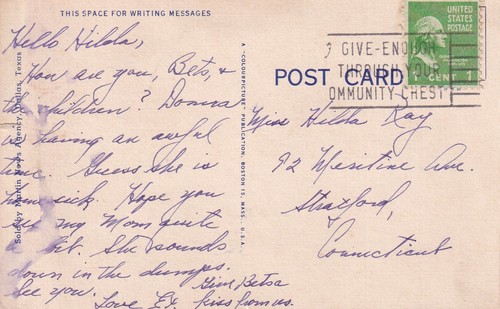 THIS SPACE FOR WRITING MESSAGES
Hello Hilda,
How are you, Bets, &
the children? Donna
is having an awful
time. Guess she is
home sick. Hope you
see my Mom quite
a bit. She sounds
down in the dumps.
See you.
Love
Give Betsa
kiss from us.
Sold by Martin News Agency, Dallas, Texas
A "COLOURPICTURE" PUBLICATION, BOSTON 15, MASS., U.S.A.
POST CARD
UNITED
STATES
POSTAGE
1 CENT 1
GIVE-ENOUGH
THROUGH YOUR
OMMUNITY CHEST
Miss Hilda Ray
92 Ave.
Stratford,
Connecticut